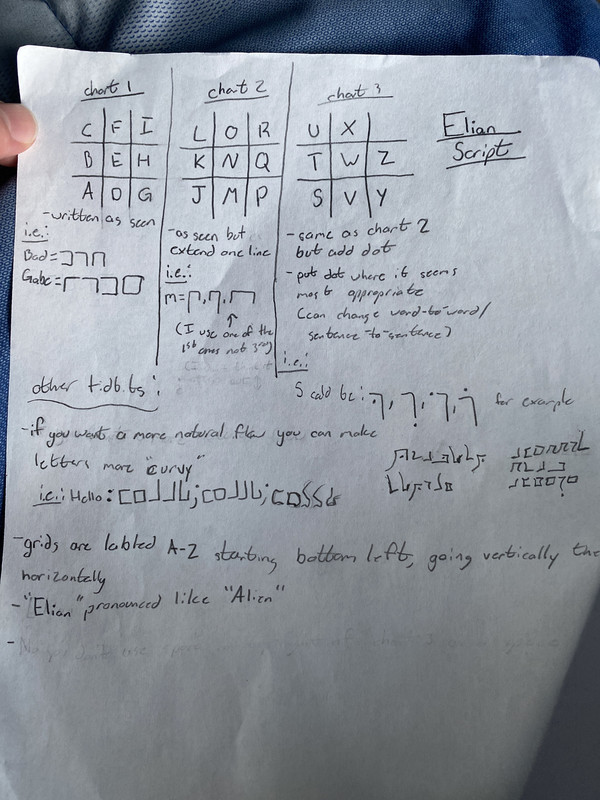 chart 1
chart 2
chart 3
Elian
Script
C F I
B E H
A D G
L O R
K N Q
J M P
U X
T W Z
S V Y
-written as seen
i.e.:
Bad =
Gabe =
-as seen but
extend one line
i.e.:
m = , ,
(I use one of the
1st ones not 3rd)
- same as chart 2
but add dot
- put dot where it seems
most appropriate
(can change word-to-word/
sentence-to-sentence)
i.e.:
S could be: , , , for example
other tidbits:
-if you want a more natural flow you can make
letters more "curvy"
i.e.: Hello: ; ;
-grids are labled A-Z starting bottom left, going vertically the
horizontally
-"Elian" pronounced like "Alien"